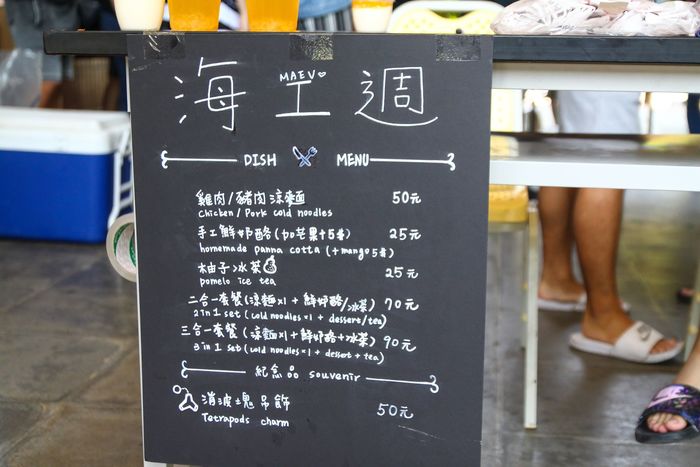 海工週
MAEV♡
DISH MENU
雞肉/豬肉涼麵 50元
Chicken/Pork cold noodles
手工鮮奶酪(加芒果+5元) 25元
homemade panna cotta (+mango 5元)
柚子冰茶 25元
pomelo ice tea
二合一套餐(涼麵x1+鮮奶酪/冰茶) 70元
2in1 set (cold noodles×1 + dessert/tea)
三合一套餐(涼麵x1+鮮奶酪+冰茶) 90元
3in1 set (cold noodles×1 + dessert + tea)
紀念品 souvenir
消波塊吊飾 50元
Tetrapods charm